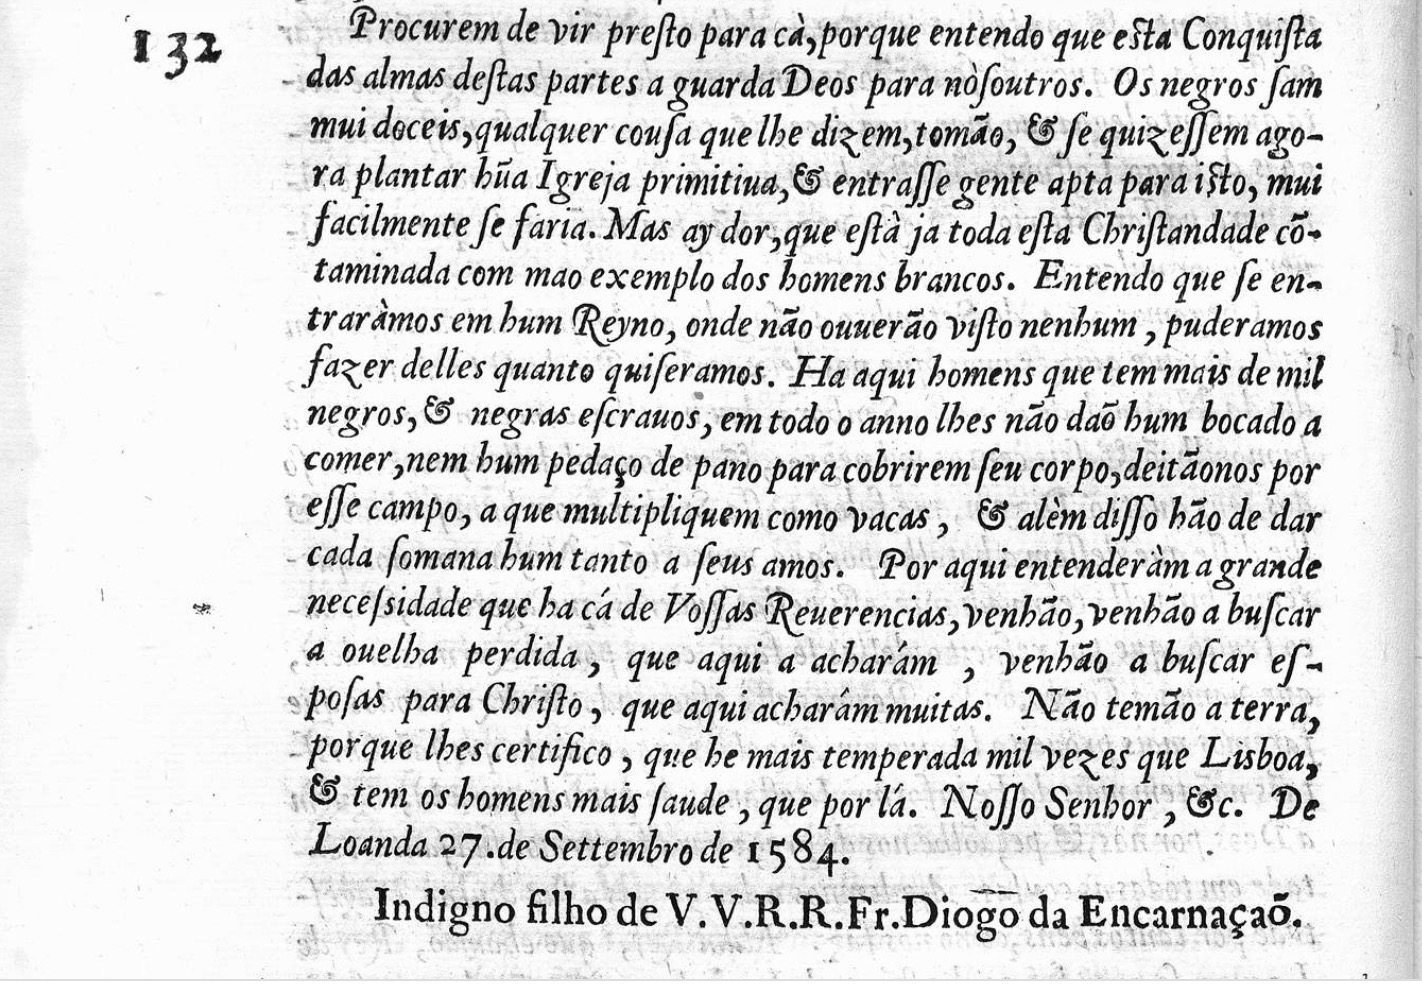 132
Procurem de vir preſto para cà, porque entendo que eſta Conquiſta
das almas deſtas partes a guarda Deos para nòſoutros. Os negros ſam
mui doceis, qualquer couſa que lhe dizem, tomão, & ſe quizeſſem ago-
ra plantar hũa Igreja primitiua, & entraſſe gente apta para iſto, mui
facilmente ſe faria. Mas ay dor, que eſtà ja toda eſta Chriſtandade cõ-
taminada com mao exemplo dos homens brancos. Entendo que ſe en-
traràmos em hum Reyno, onde não ouuerão viſto nenhum, puderamos
fazer delles quanto quiſeramos. Ha aqui homens que tem mais de mil
negros, & negras eſcrauos, em todo o anno lhes não daõ hum bocado a
comer, nem hum pedaço de pano para cobrirem ſeu corpo, deitãonos por
eſſe campo, a que multipliquem como vacas, & alèm diſſo hão de dar
cada ſomana hum tanto a ſeus amos. Por aqui entenderàm a grande
neceſsidade que ha cá de Voſſas Reuerencias, venhão, venhão a buſcar
a ouelha perdida, que aqui a acharám, venhão a buſcar eſ-
poſas para Chriſto, que aqui acharám muitas. Não temão a terra,
porque lhes certifico, que he mais temperada mil vezes que Lisboa,
& tem os homens mais ſaude, que por lá. Noſſo Senhor, &c. De
Loanda 27. de Settembro de 1584.
Indigno filho de V. V. R. R. Fr. Diogo da Encarnaçaõ.